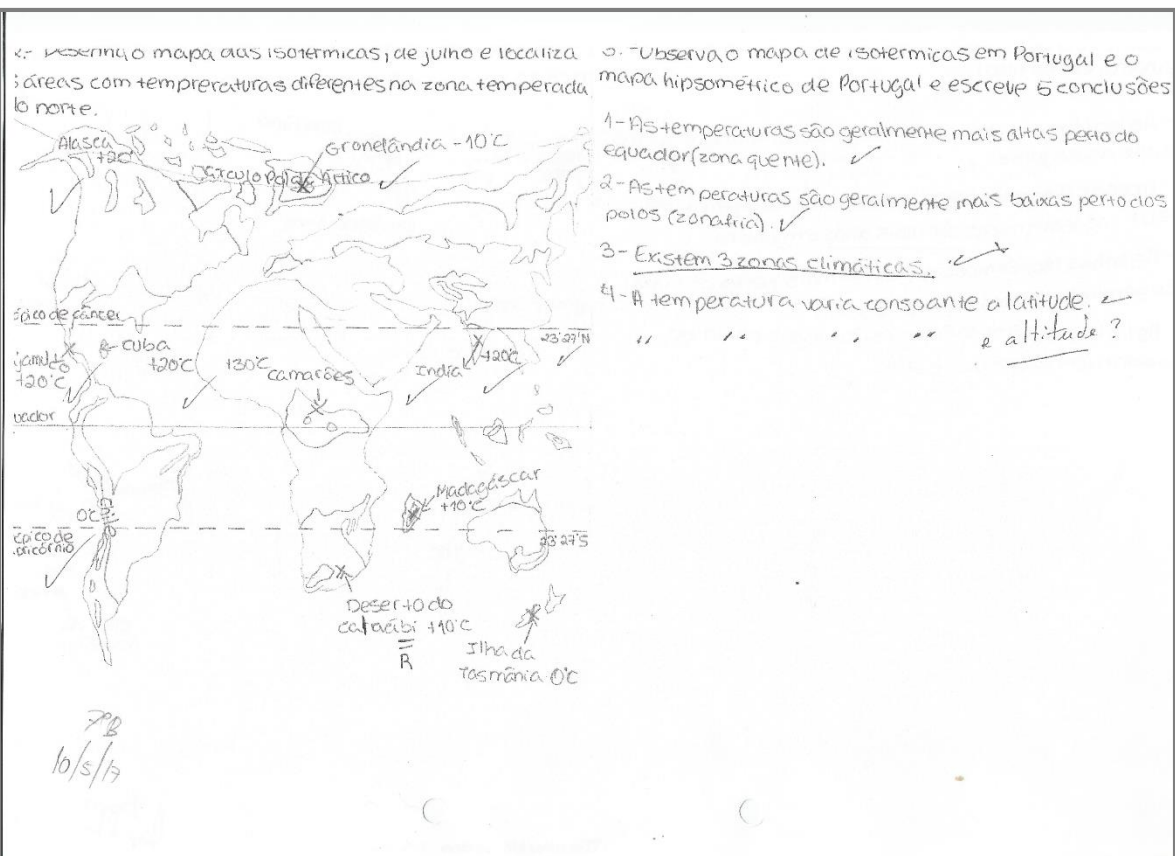 2- Desenha o mapa das isotermicas, de julho e localiza
5 áreas com tempreraturas diferentes na zona temperada
do norte.
Alasca
+20°C
Gronelândia -10°C
Círculo Polar Ártico
ópico de câncer
23°27'N
Cuba
+20°C
+20°C
+30°C
camarões
India
+20°C
uador
Madagáscar
+10°C
0°C
Chile
ópico de
pricórnio
23°27'S
Deserto do
calacibi +10°C
R
Ilha da
Tasmânia 0°C
7ºB
10/5/17
3. - Observa o mapa de isotermicas em Portugal e o
mapa hipsométrico de Portugal e escreve 5 conclusões
1- As temperaturas são geralmente mais altas perto do
equador (zona quente).
2- As temperaturas são geralmente mais baixas perto dos
polos (zona fria).
3- Existem 3 zonas climáticas.
4- A temperatura varia consoante a latitude.
" " " " e altitude?